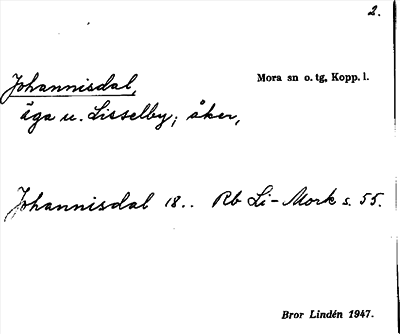 2.
Johannisdal, Mora sn o. tg, Kopp. l.
äga u. Lisselby; åker,
Johannisdal 18.. Rb Li-Mork s. 55.
Bror Lindén 1947.